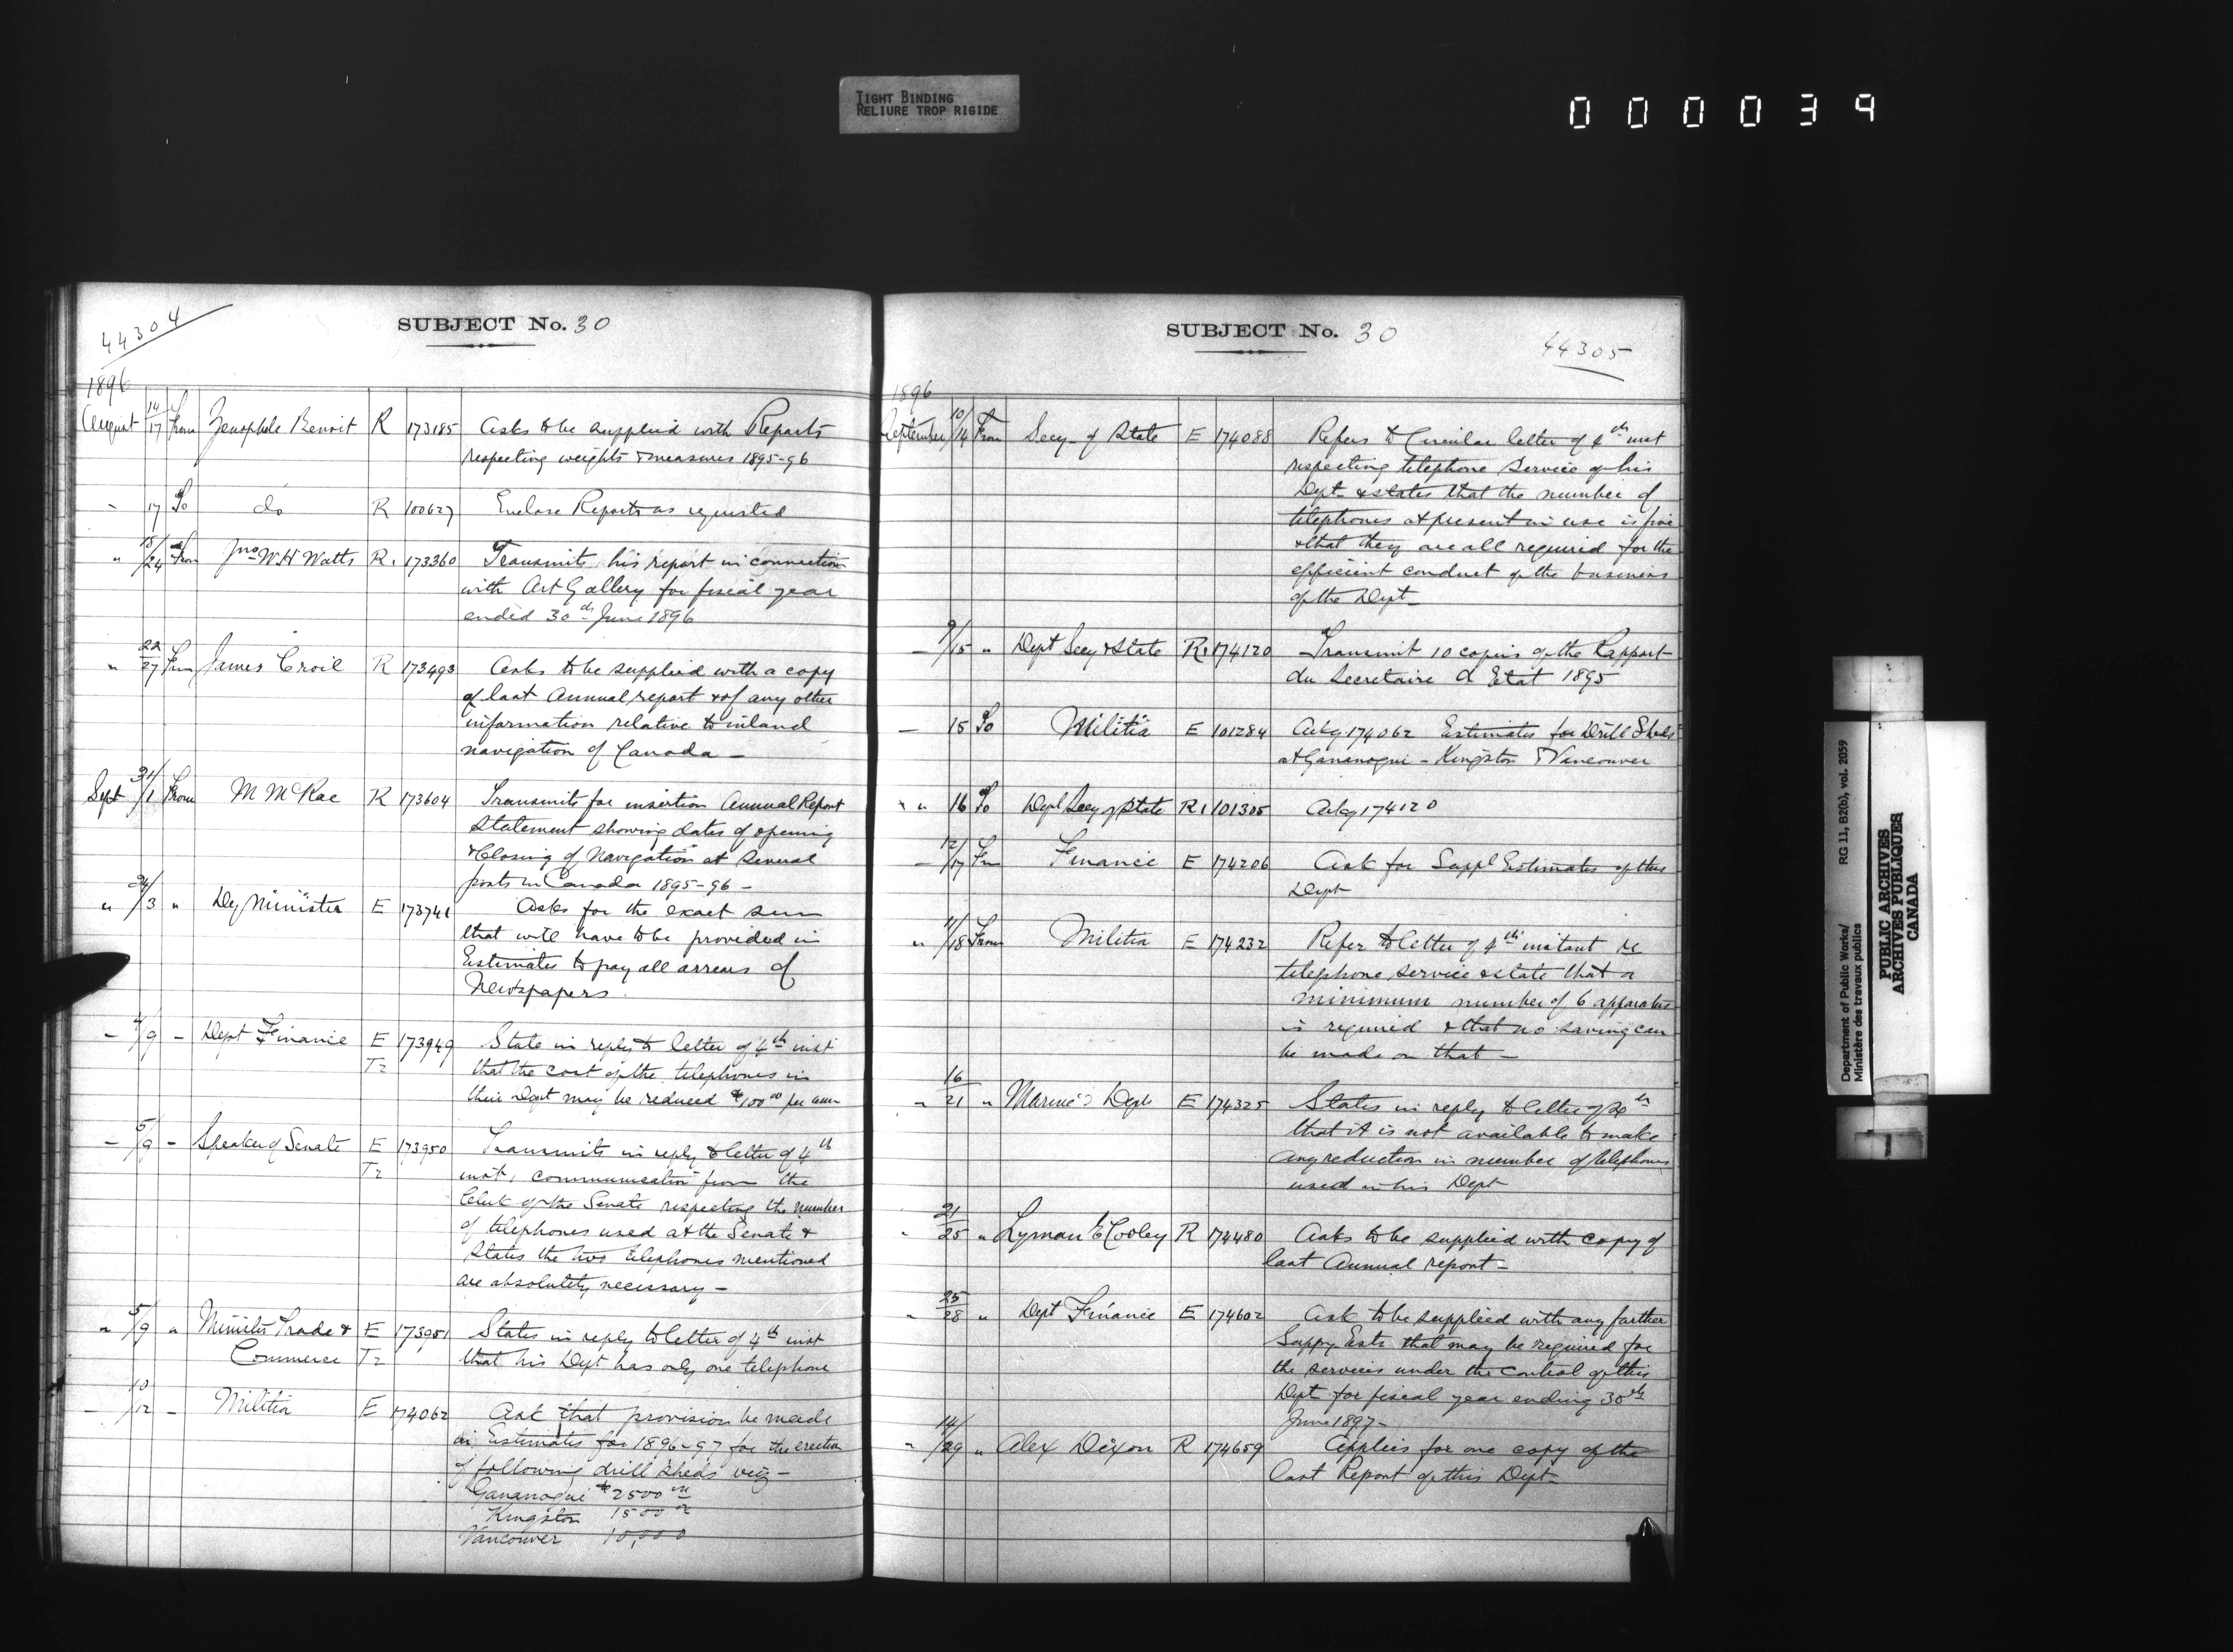 TIGHT BINDING
RELIURE TROP RIGIDE
000039
44304
SUBJECT No. 30
1896
August 14/17 From Zenophile Benoit R 173185 Asks to be supplied with Reports
respecting weights & measures 1895-96
" 17 To do R 100627 Enclose Reports as requested
" 18/24 From Jno W H Watts R. 173360 Transmits his report in connection
with Art Gallery for fiscal year
ended 30th June 1896
" 22/27 From James Croil R 173493 Asks to be supplied with a copy
of last Annual report & of any other
information relative to inland
navigation of Canada —
Sept 31/1 From M McRae R 173604 Transmits for insertion Annual Report
Statement showing dates of opening
& Closing of Navigation at several
ports in Canada 1895-96 —
" /3 " Dy Minister E 173741 Asks for the exact sum
that will have to be provided in
Estimates to pay all arrears of
Newspapers.
— /9 — Dept Finance E 173949 State in reply to letter of 4th inst
Tr that the cost of the telephones in
their Dept may be reduced $100 00 per ann
— 5/9 — Speaker of Senate E 173950 Transmits in reply to letter of 4th
Tr inst, communication from the
Clerk of the Senate respecting the number
of telephones used at the Senate &
States the two telephones mentioned
are absolutely necessary —
" 5/9 " Minister Trade & E 173951 States in reply to letter of 4th inst
Commerce Tr that his Dept has only one telephone
— 10/12 — Militia E 174062 Ask that provision be made
in Estimates for 1896-97 for the erection
of following drill sheds viz —
Gananoque $2500
Kingston 1500
Vancouver 10,000
SUBJECT No. 30
44305
1896
September 10/14 From Secy of State E 174088 Refers to Circular letter of 4th inst
respecting telephone service of his
Dept & states that the number of
telephones at present in use is five
& that they are all required for the
efficient conduct of the business
of the Dept —
— 9/15 " Dept Secy & State R. 174120 Transmit 10 copies of the Rapport
du Secretaire d Etat 1895
— 15 To Militia E 101284 Ackg 174062 Estimates for Drill Sheds
at Gananoque - Kingston & Vancouver
" " 16 To Dept Secy of State R. 101305 Ackg 174120
— 12/17 Fm Finance E 174206 Ask for Suppl Estimates of this
Dept
" 11/18 From Militia E 174232 Refer to letter of 4th instant re
telephone service & state that a
minimum number of 6 apparatus
is required & that no saving can
be made on that —
" 16/21 " Marine Dept E 174325 States in reply to letter of 4th
that it is not available to make
any reduction in number of telephones
used in his Dept
" 21/25 " Lyman E Cooley R 174480 Asks to be supplied with copy of
last Annual report —
" 25/28 " Dept Finance E 174602 Ask to be supplied with any further
Suppy Ests that may be required for
the services under the control of this
Dept for fiscal year ending 30th
June 1897 —
" 14/29 " Alex Dixon R 174659 Applies for one copy of the
last Report of this Dept
Department of Public Works/ RG 11, B2(b), vol. 2059
Ministère des travaux publics
PUBLIC ARCHIVES
ARCHIVES PUBLIQUES
CANADA